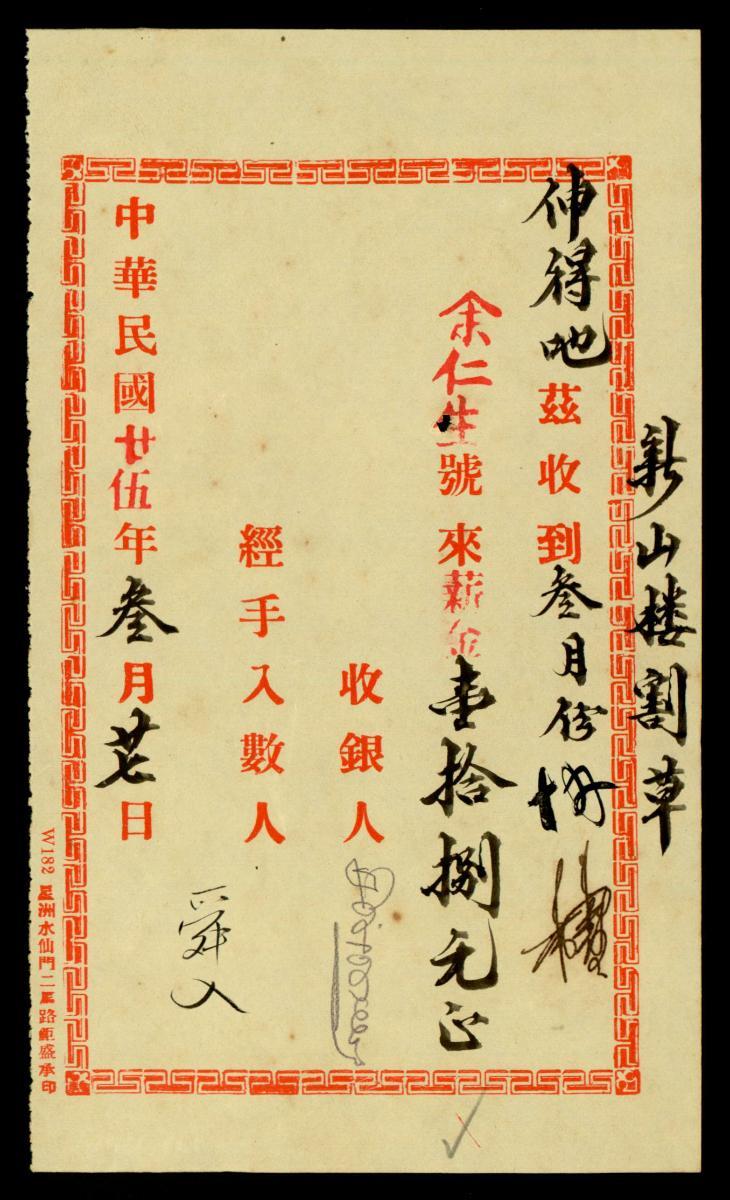 新山楼割草
伸得吔茲收到叁月份
余仁生號來薪金壹拾捌元正
收銀人
經手入數人
舜入
中華民國廿伍年叁月廿七日
W182 星洲水仙門二馬路鉅盛承印